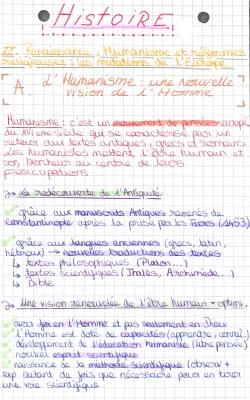 • Histoire •
II. Renaissance, Humanisme et réformes
religieuses : les mutations de l'Europe
A. L'Humanisme : une nouvelle
vision de l'Homme
Humanisme : c'est un mouvement de pensée europé
du XVIe siècle qui se caractérise par un
retour aux textes antiques, grecs et romains
Les humanistes mettent l'être humain et
son bonheur au centre de leurs
préoccupations
1) La redécouverte de l'Antiquité
grâce aux manuscrits Antiques ramenés de
Constantinople après la prise par les Turcs (1453)
grâce aux langues anciennes (grec, latin,
hébreu) → nouvelles traductions des textes
↳ textes philosophiques (Platon...)
↳ textes scientifiques (Thalès, Archimède...)
↳ Bible
2) Une vision renouvelée de l'être humain + optim.
avoir foi en l'Homme et pas seulement en Dieu
L'Homme est doté de capacités (apprendre,
développement de l'éducation humaniste (libre pensée)
nouvel esprit scientifique
naissance de la méthode scientifique (observer +
exp autant de fois que nécessaire pour en tirer
une scientifique